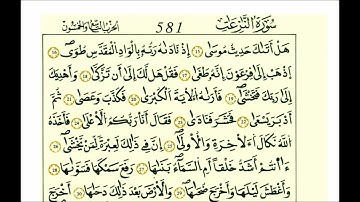 سُورَةُ النَّازِعَاتِ 581 الحِزْبُ التَّاسِعُ وَالخَمْسُونَ
هَلْ أَتَىٰكَ حَدِيثُ مُوسَىٰ إِذْ نَادَىٰهُ رَبُّهُۥ بِالْوَادِ الْمُقَدَّسِ طُوَى
اَذْهَبِ اِلَىٰ فِرْعَوْنَ إِنَّهُۥ طَغَىٰ فَقُلْ هَل لَّكَ إِلَىٰ أَن تَزَّكَّىٰ وَأَهْدِيَكَ
إِلَىٰ رَبِّكَ فَتَخْشَىٰ فَأَرَىٰهُ الْأٓيَةَ الْكُبْرَىٰ فَكَذَّبَ وَعَصَىٰ ثُمَّ
أَدْبَرَ يَسْعَىٰ فَحَشَرَ فَنَادَىٰ فَقَالَ أَنَا رَبُّكُمُ الْأَعْلَىٰ فَأَخَذَهُ
اللَّهُ نَكَالَ الْأٓخِرَةِ وَالْأُولَىٰ إِنَّ فِي ذَٰلِكَ لَعِبْرَةً لِّمَنْ يَّخْشَىٰ
ءَآنتُمْ أَشَدُّ خَلْقًا أَمِ السَّمَآءُ بَنَىٰهَا رَفَعَ سَمْكَهَا فَسَوَّىٰهَا
وَأَغْطَشَ لَيْلَهَا وَأَخْرَجَ ضُحَىٰهَا وَالْأَرْضَ بَعْدَ ذَٰلِكَ دَحَىٰهَا أَخْرَجَ